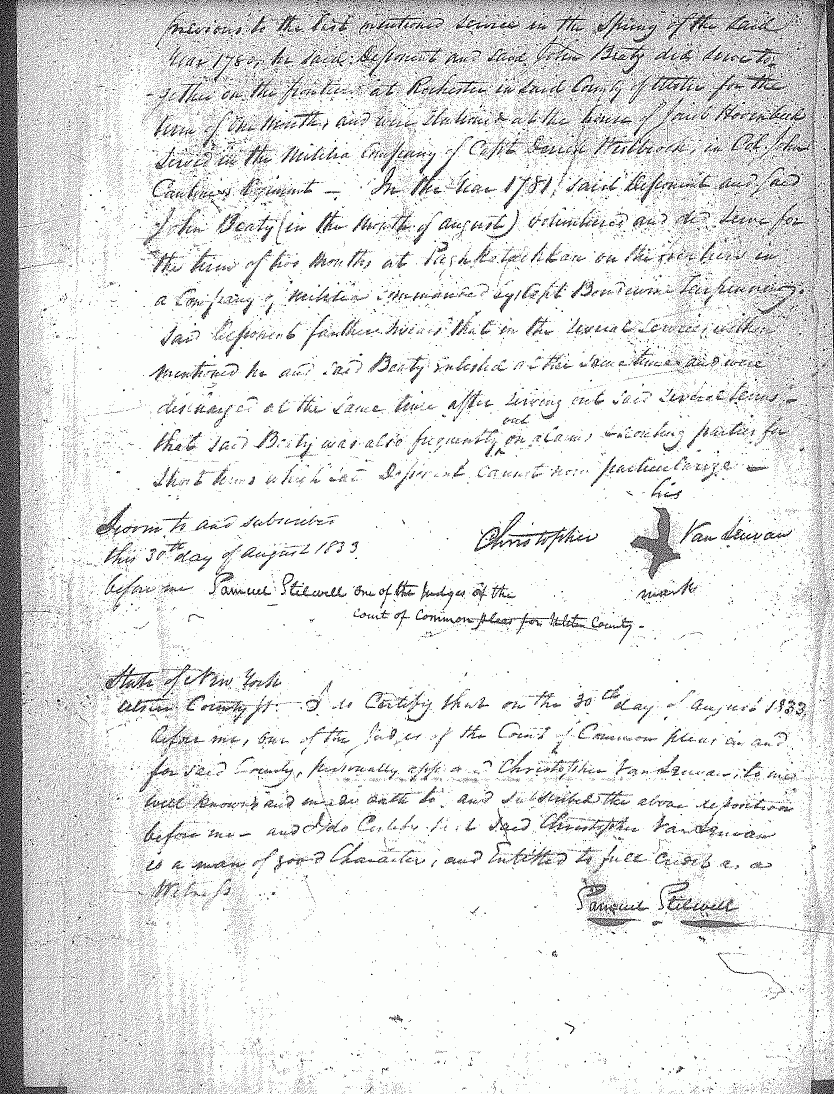 previous to the last mentioned service in the Spring of the said
Year 1780, he said Deponent and said John Beaty did serve to-
gether on the frontiers at Rochester in said County of Ulster for the
term of One Month, and were Stationed at the house of Jacob Hornbeck
served in the Militia Company of Capt Westbrook, in Col. John
Cantines Regiment — In the Year 1781, said Deponent and said
John Beaty (in the Month of august) volunteered and did serve for
the term of two Months at on the frontiers in
a Company of Militia commanded by Capt
said Deponent farther swears that in the several services within
mentioned he and said Beaty enlisted at the same times and were
discharged at the same time after serving out said several terms —
that said Beaty was also frequently out on alarms & scouting parties for
short terms which said Deponent cannot now particularize —
his
Christopher Van Leuvan
mark
Sworn to and subscribed
this 30th day of august 1833
before me Samuel Stilwell one of the Judges of the
court of Common pleas for Ulster County.
State of New York
Ulster County ss. I do Certify that on the 30th day of august 1833,
before me, one of the Judges of the Court of Common pleas in and
for said County, personally appeared Christopher Van Leuvan, to me
well known and made oath to, and subscribed the above deposition
before me — and I do Certify that said Christopher Van Leuvan
is a man of good Character, and Entitled to full Credit as a
Witness
Samuel Stilwell